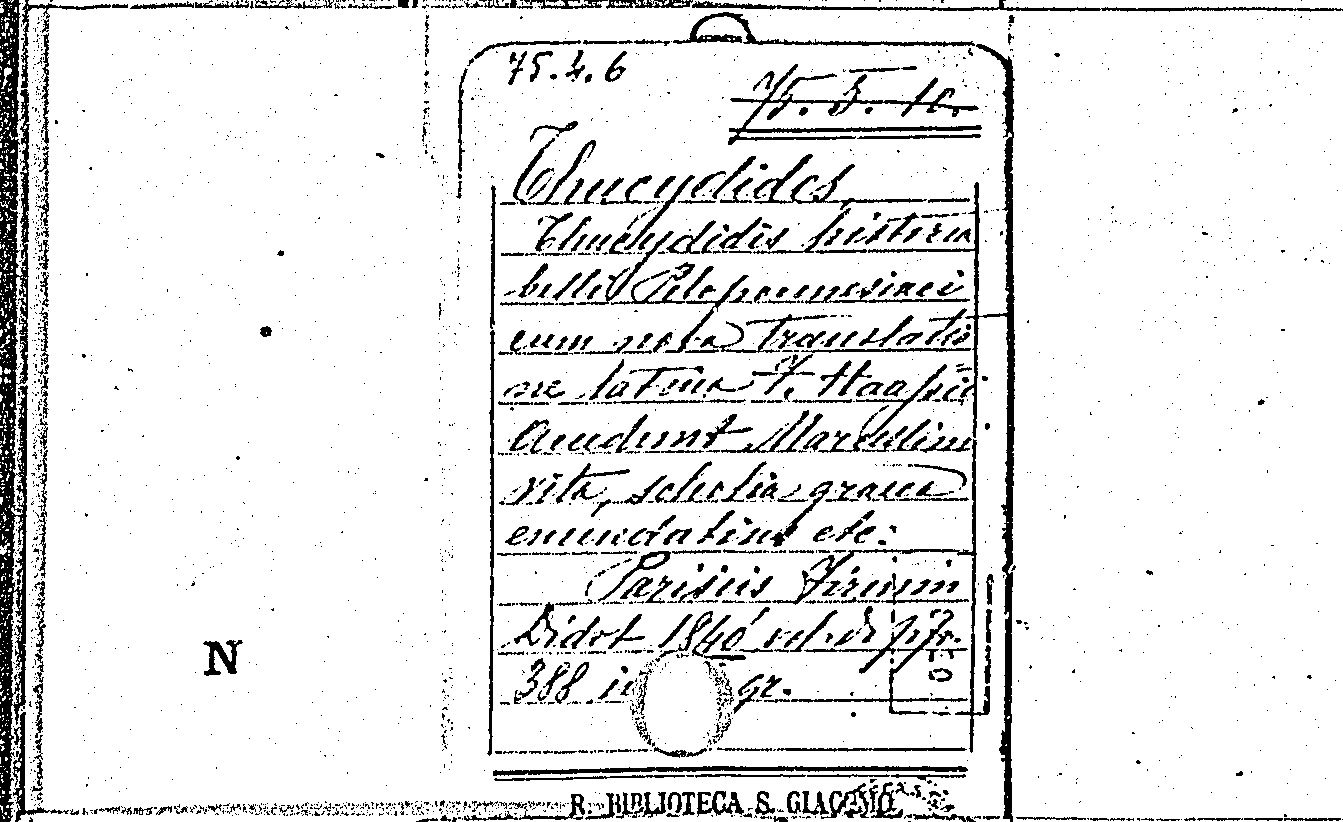 75.4.6
75.5.10.
Thucydides,
Thucydidis historia
belli Peloponnesiaci
cum nova translatio
ne latina F. Haasii
Accedunt Marcellini
vita, scholia graeca
emendatius etc:
Parisiis Firmin
Didot 1840 vol. di pp.
388 gr.
N
R. BIBLIOTECA S. GIACOMO